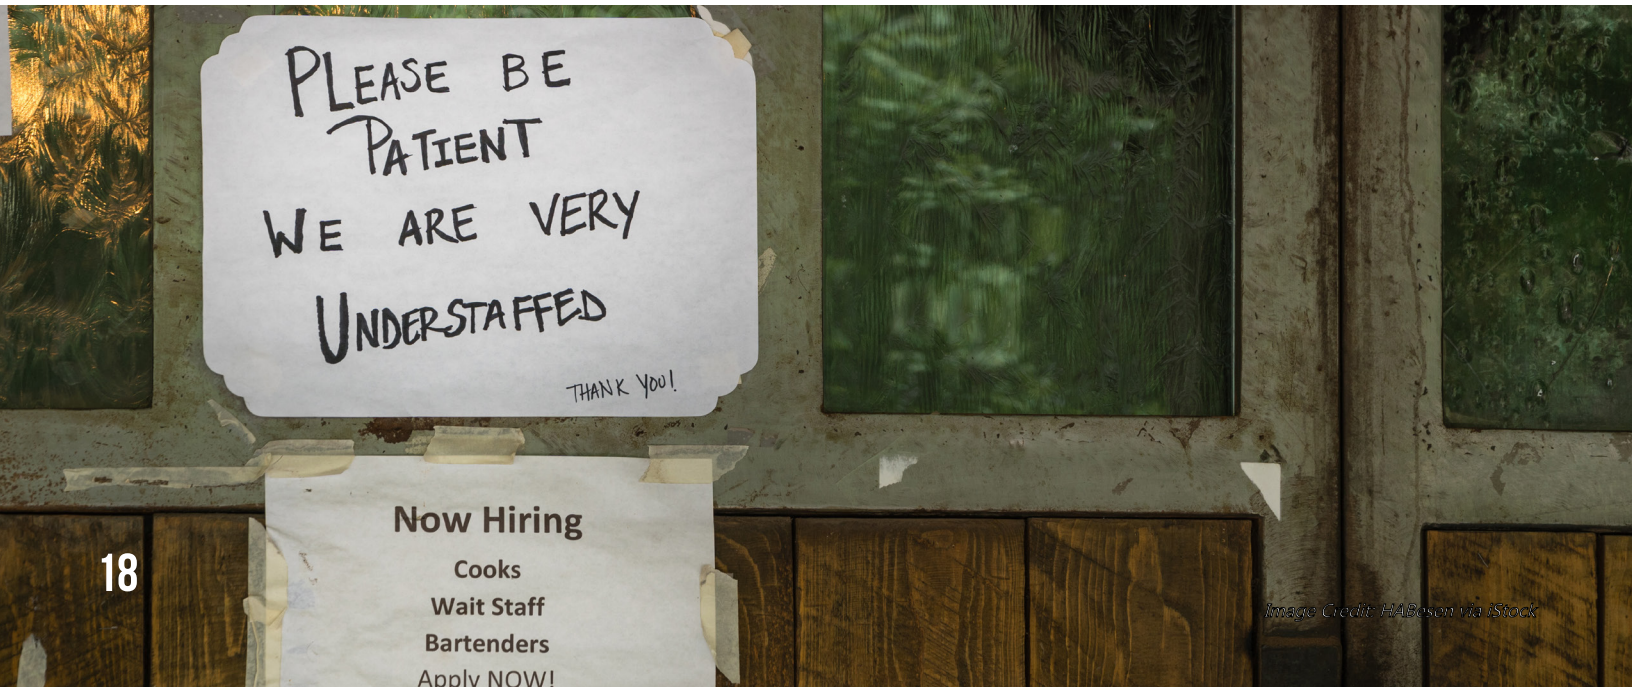 PLEASE BE
PATIENT
WE ARE VERY
UNDERSTAFFED
THANK YOU!
Now Hiring
Cooks
Wait Staff
Bartenders
Apply NOW!
18
Image Credit: HABesen via iStock